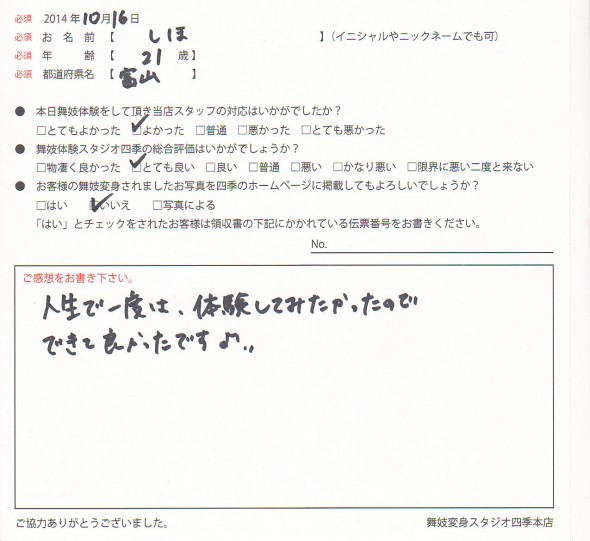 必須 2014年10月16日
必須 お名前【 しほ 】(イニシャルやニックネームでも可)
必須 年齢【 21 歳】
必須 都道府県名【 富山 】
● 本日舞妓体験をして頂き当店スタッフの対応はいかがでしたか？
□とてもよかった ☑よかった □普通 □悪かった □とても悪かった
● 舞妓体験スタジオ四季の総合評価はいかがでしょうか？
□物凄く良かった ☑とても良い □良い □普通 □悪い □かなり悪い □限界に悪い二度と来ない
● お客様の舞妓変身されましたお写真を四季のホームページに掲載してもよろしいでしょうか？
□はい ☑いいえ □写真による
「はい」とチェックをされたお客様は領収書の下記にかかれている伝票番号をお書きください。
No.
ご感想をお書き下さい。
人生で一度は、体験してみたかったので
できて良かったです♪
ご協力ありがとうございました。 舞妓変身スタジオ四季本店